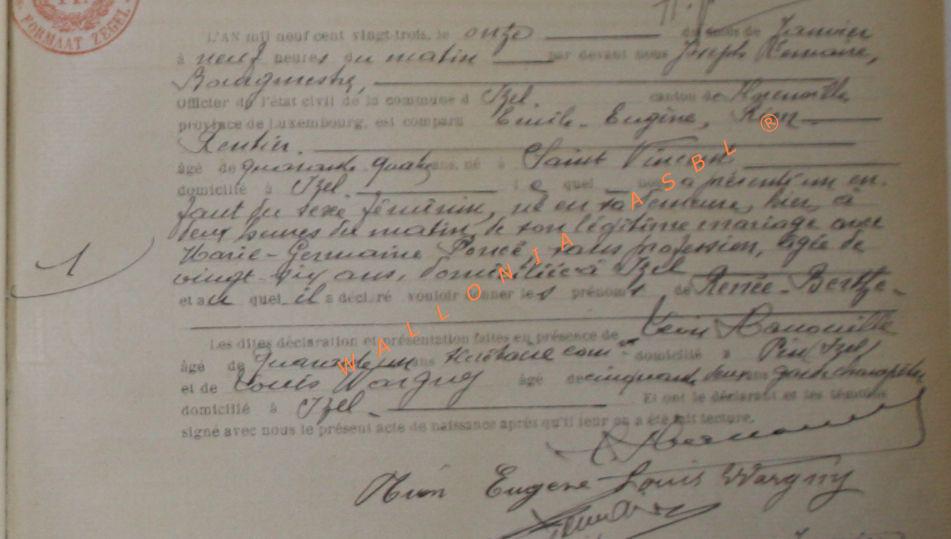 FORMAAT ZEGEL.
L'AN mil neuf cent vingt-trois, le onze du mois de Janvier
à neuf heures du matin par devant nous Joseph
Bourgmestre,
Officier de l'état civil de la commune d Izel canton de Florenville
province de Luxembourg, est comparu Emile-Eugène,
Rentier.
âgé de quarante quatre ans, né à Saint Vincent
domicilié à Izel. l e quel nous a présenté un en-
fant du sexe féminin, né en sa demeure, hier, à
deux heures du matin, de son légitime mariage avec
Marie-Germaine Poncé, sans profession, âgée de
vingt-six ans, domiciliée à Izel
et au quel il a déclaré vouloir donner les prénoms de Renée-Berthe-
Les dites déclaration et présentation faites en présence de
âgé de quarante un ans secrétaire com domicilié à Pin Izel
et de Louis Wargny âgé de cinquante deux ans garde champêtre
domicilié à Izel. Et ont le déclarant et les témoins
signé avec nous le présent acte de naissance après qu'il leur en a été fait lecture.
1
Eugène Louis Wargny
WALLONIA ASBL ®